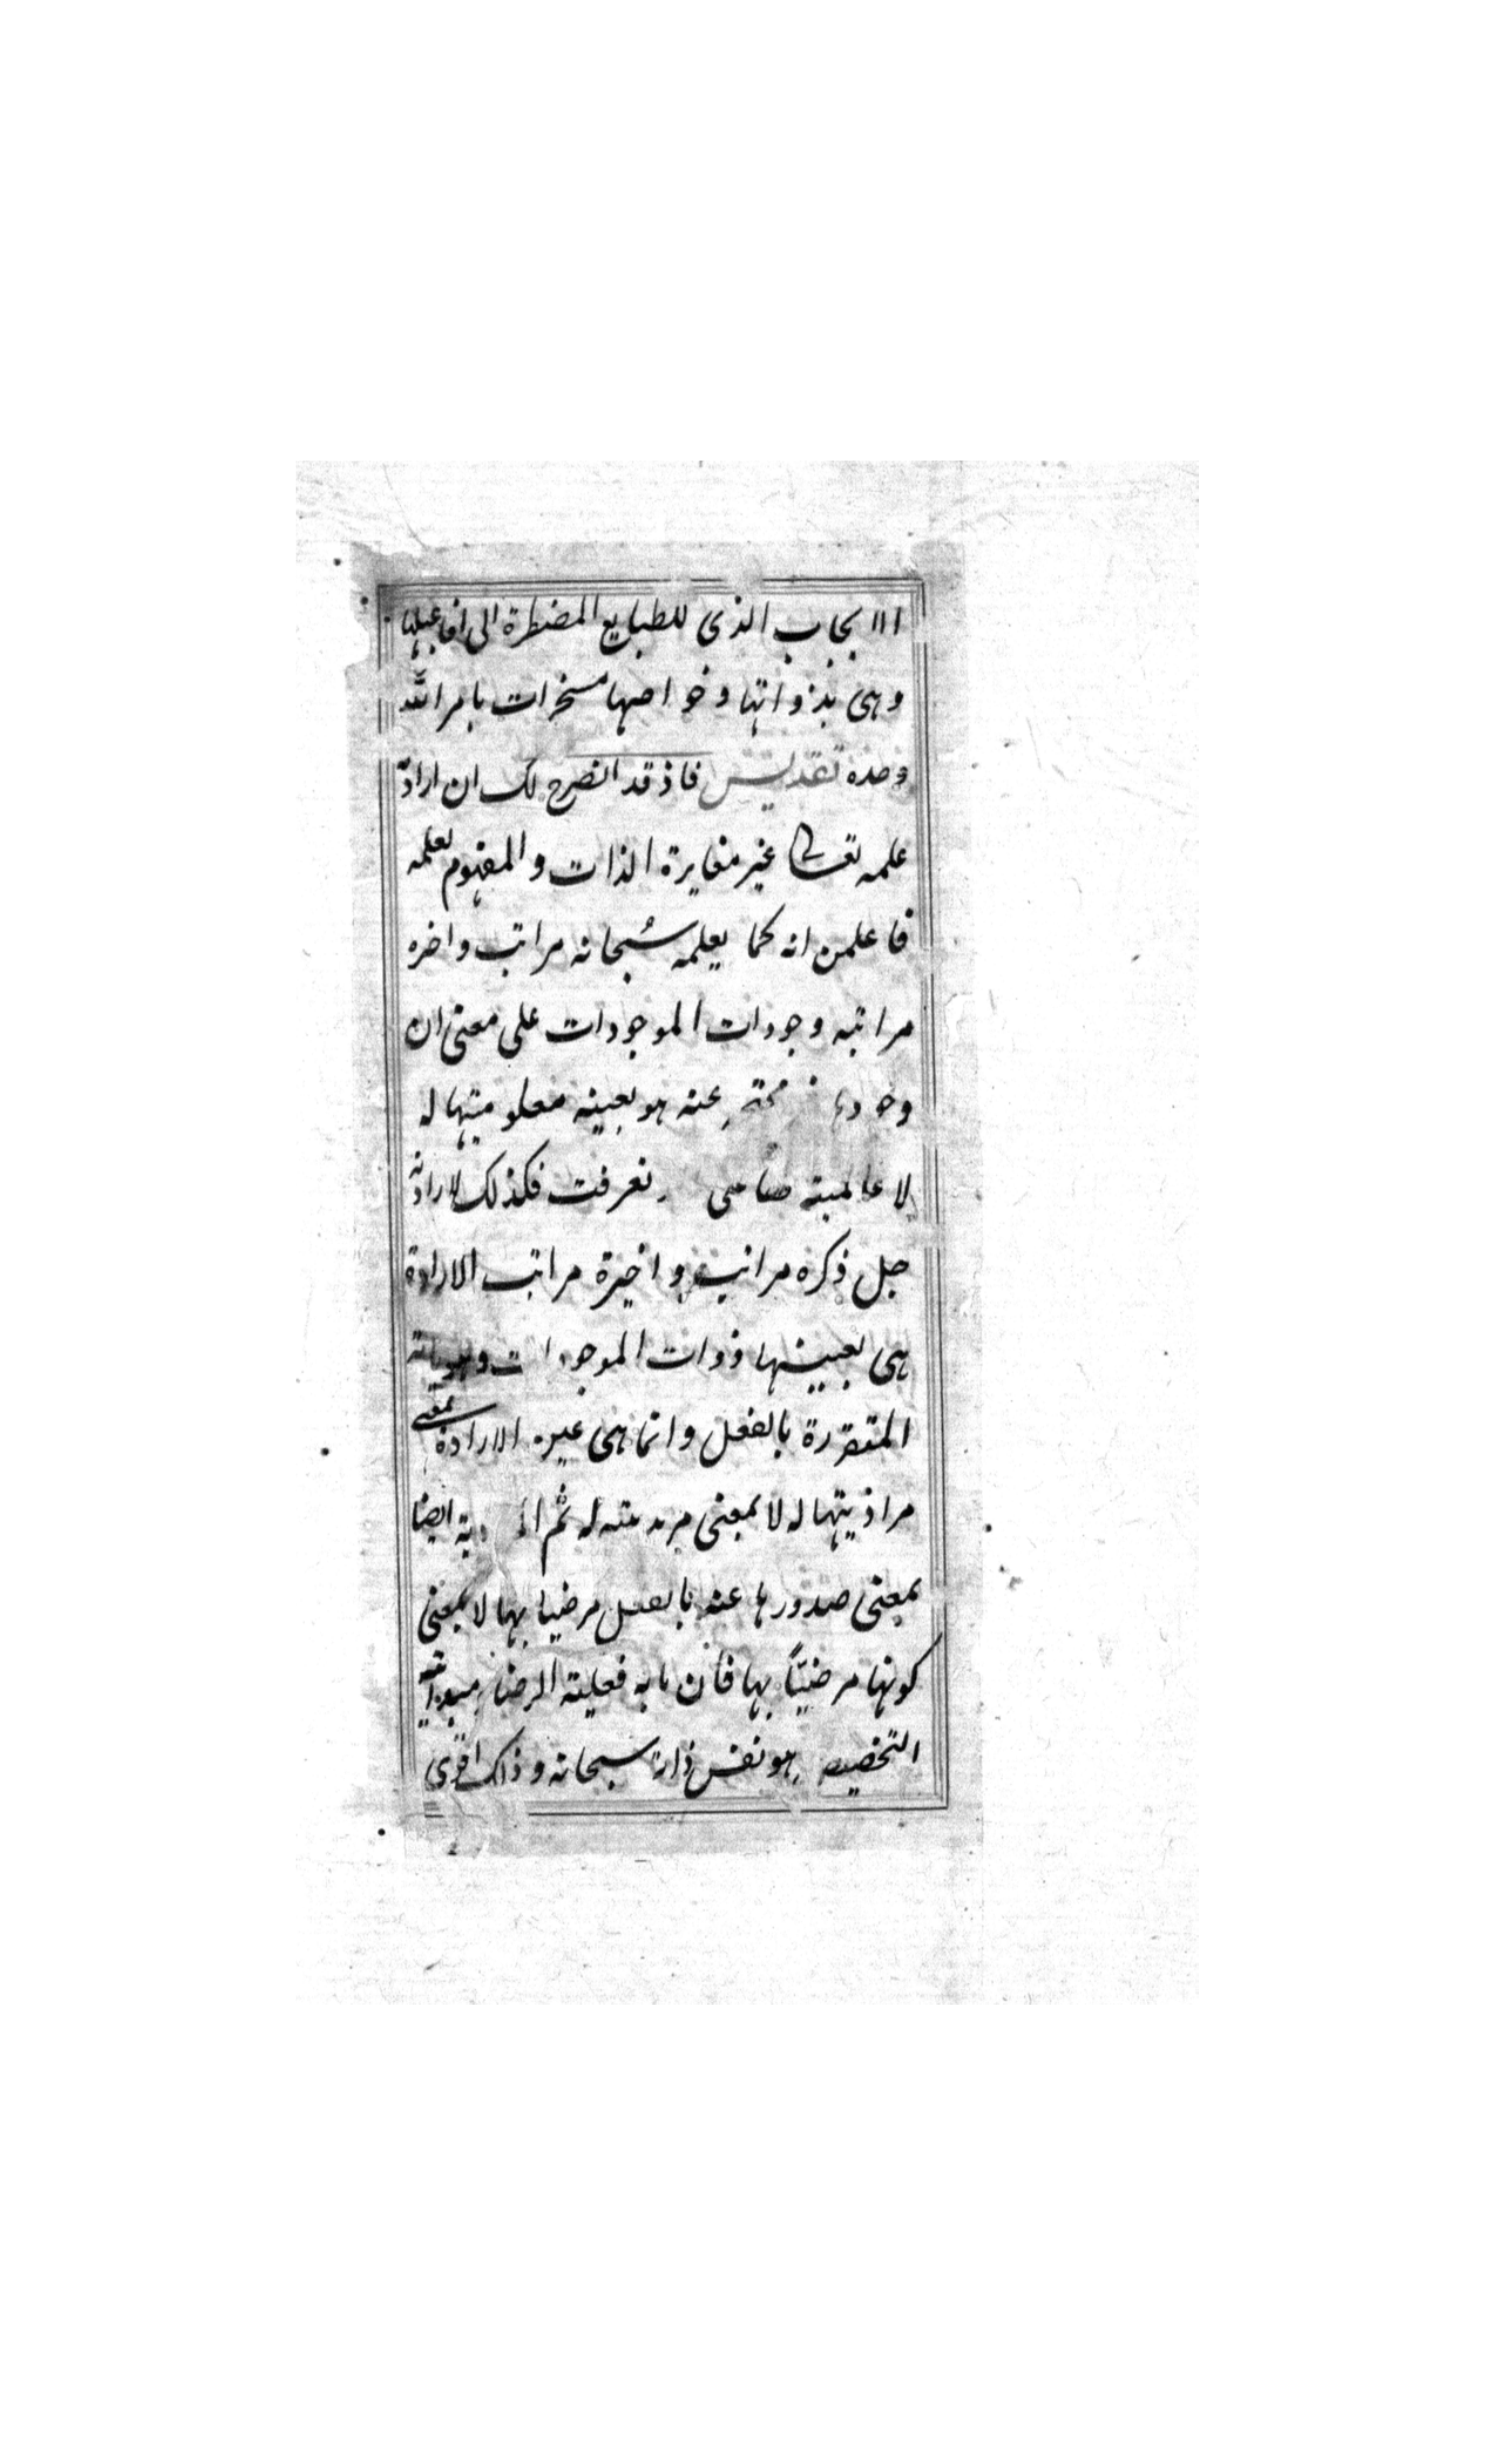 الايجاب الذى للطبايع المضطرة الى افاعيلها
وهى بذواتها وخواصها مسخرات بامر الله
وحده تقديس فاذ قد انصرح لك ان ارادة
علمه تعالى غير مغايرة الذات والمفهوم لعلمه
فاعلمن انه كما يعلمه سبحانه مراتب واخره
مراتبه وجودات الموجودات على معنى ان
عنه هو بعينه معلوميتها له
لا عالميته فكذلك لارادته
جل ذكره مراتب واخيرة مراتب الارادة
هى بعينها ذوات الموجودات
المتقررة بالفعل وانما هى عين الارادة بمعنى
مراديتها له لا بمعنى مريديته له ثم ايضا
بمعنى صدورها عنه بالفعل مرضيا بها لا بمعنى
كونها مرضيّاً بها فان ما به فعلية الرضا ومبدائية
التخصيص هو نفس ذاته سبحانه وذلك اقوى